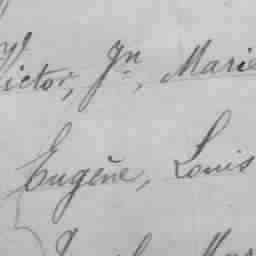 Victor, Jn, Marie
Eugène, Louis